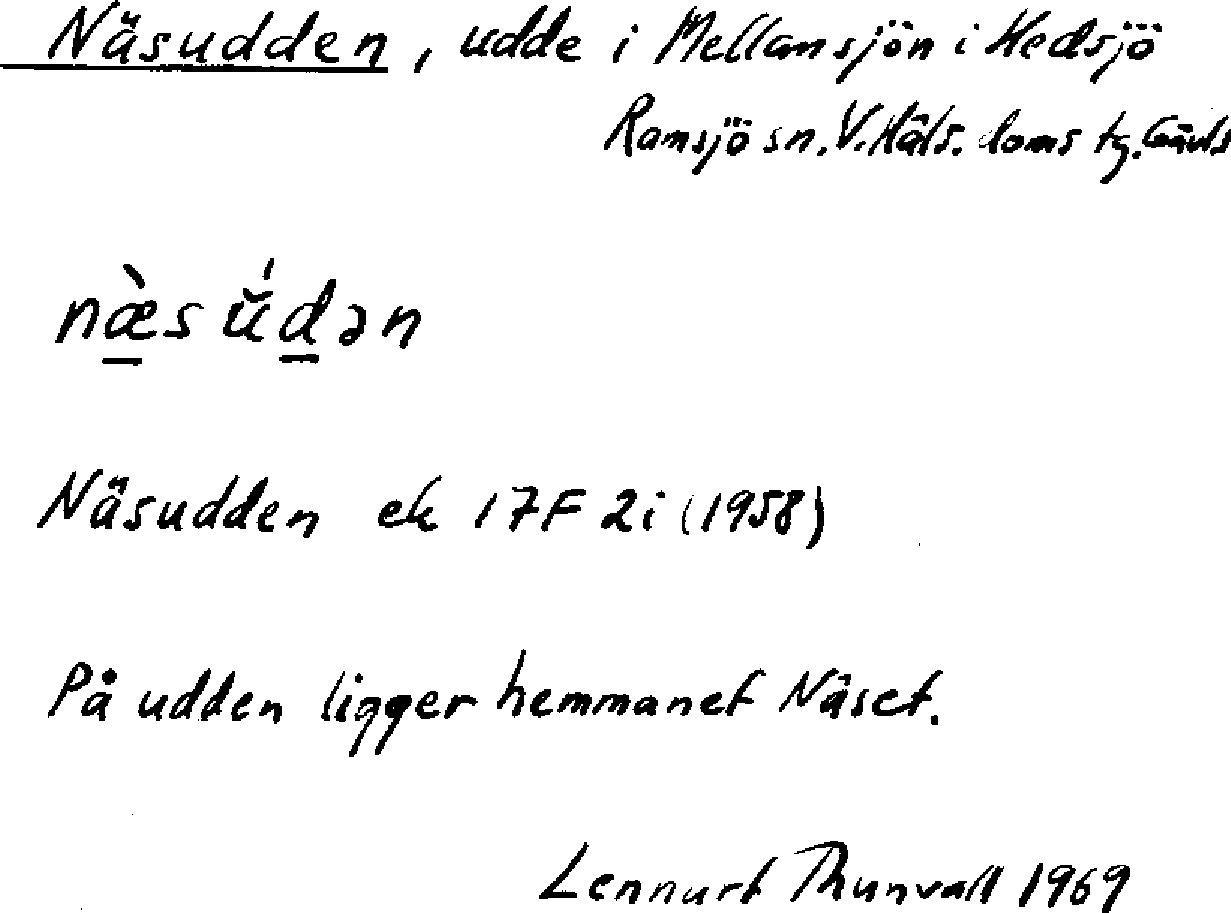 Näsudden, udde i Mellansjön i Hedsjö
Ramsjö sn. V. Häls. doms tg. Gävls
næ̀s ŭ́dən
Näsudden ek 17F 2i (1958)
På udden ligger hemmanet Näset.
Lennart Thunvall 1969